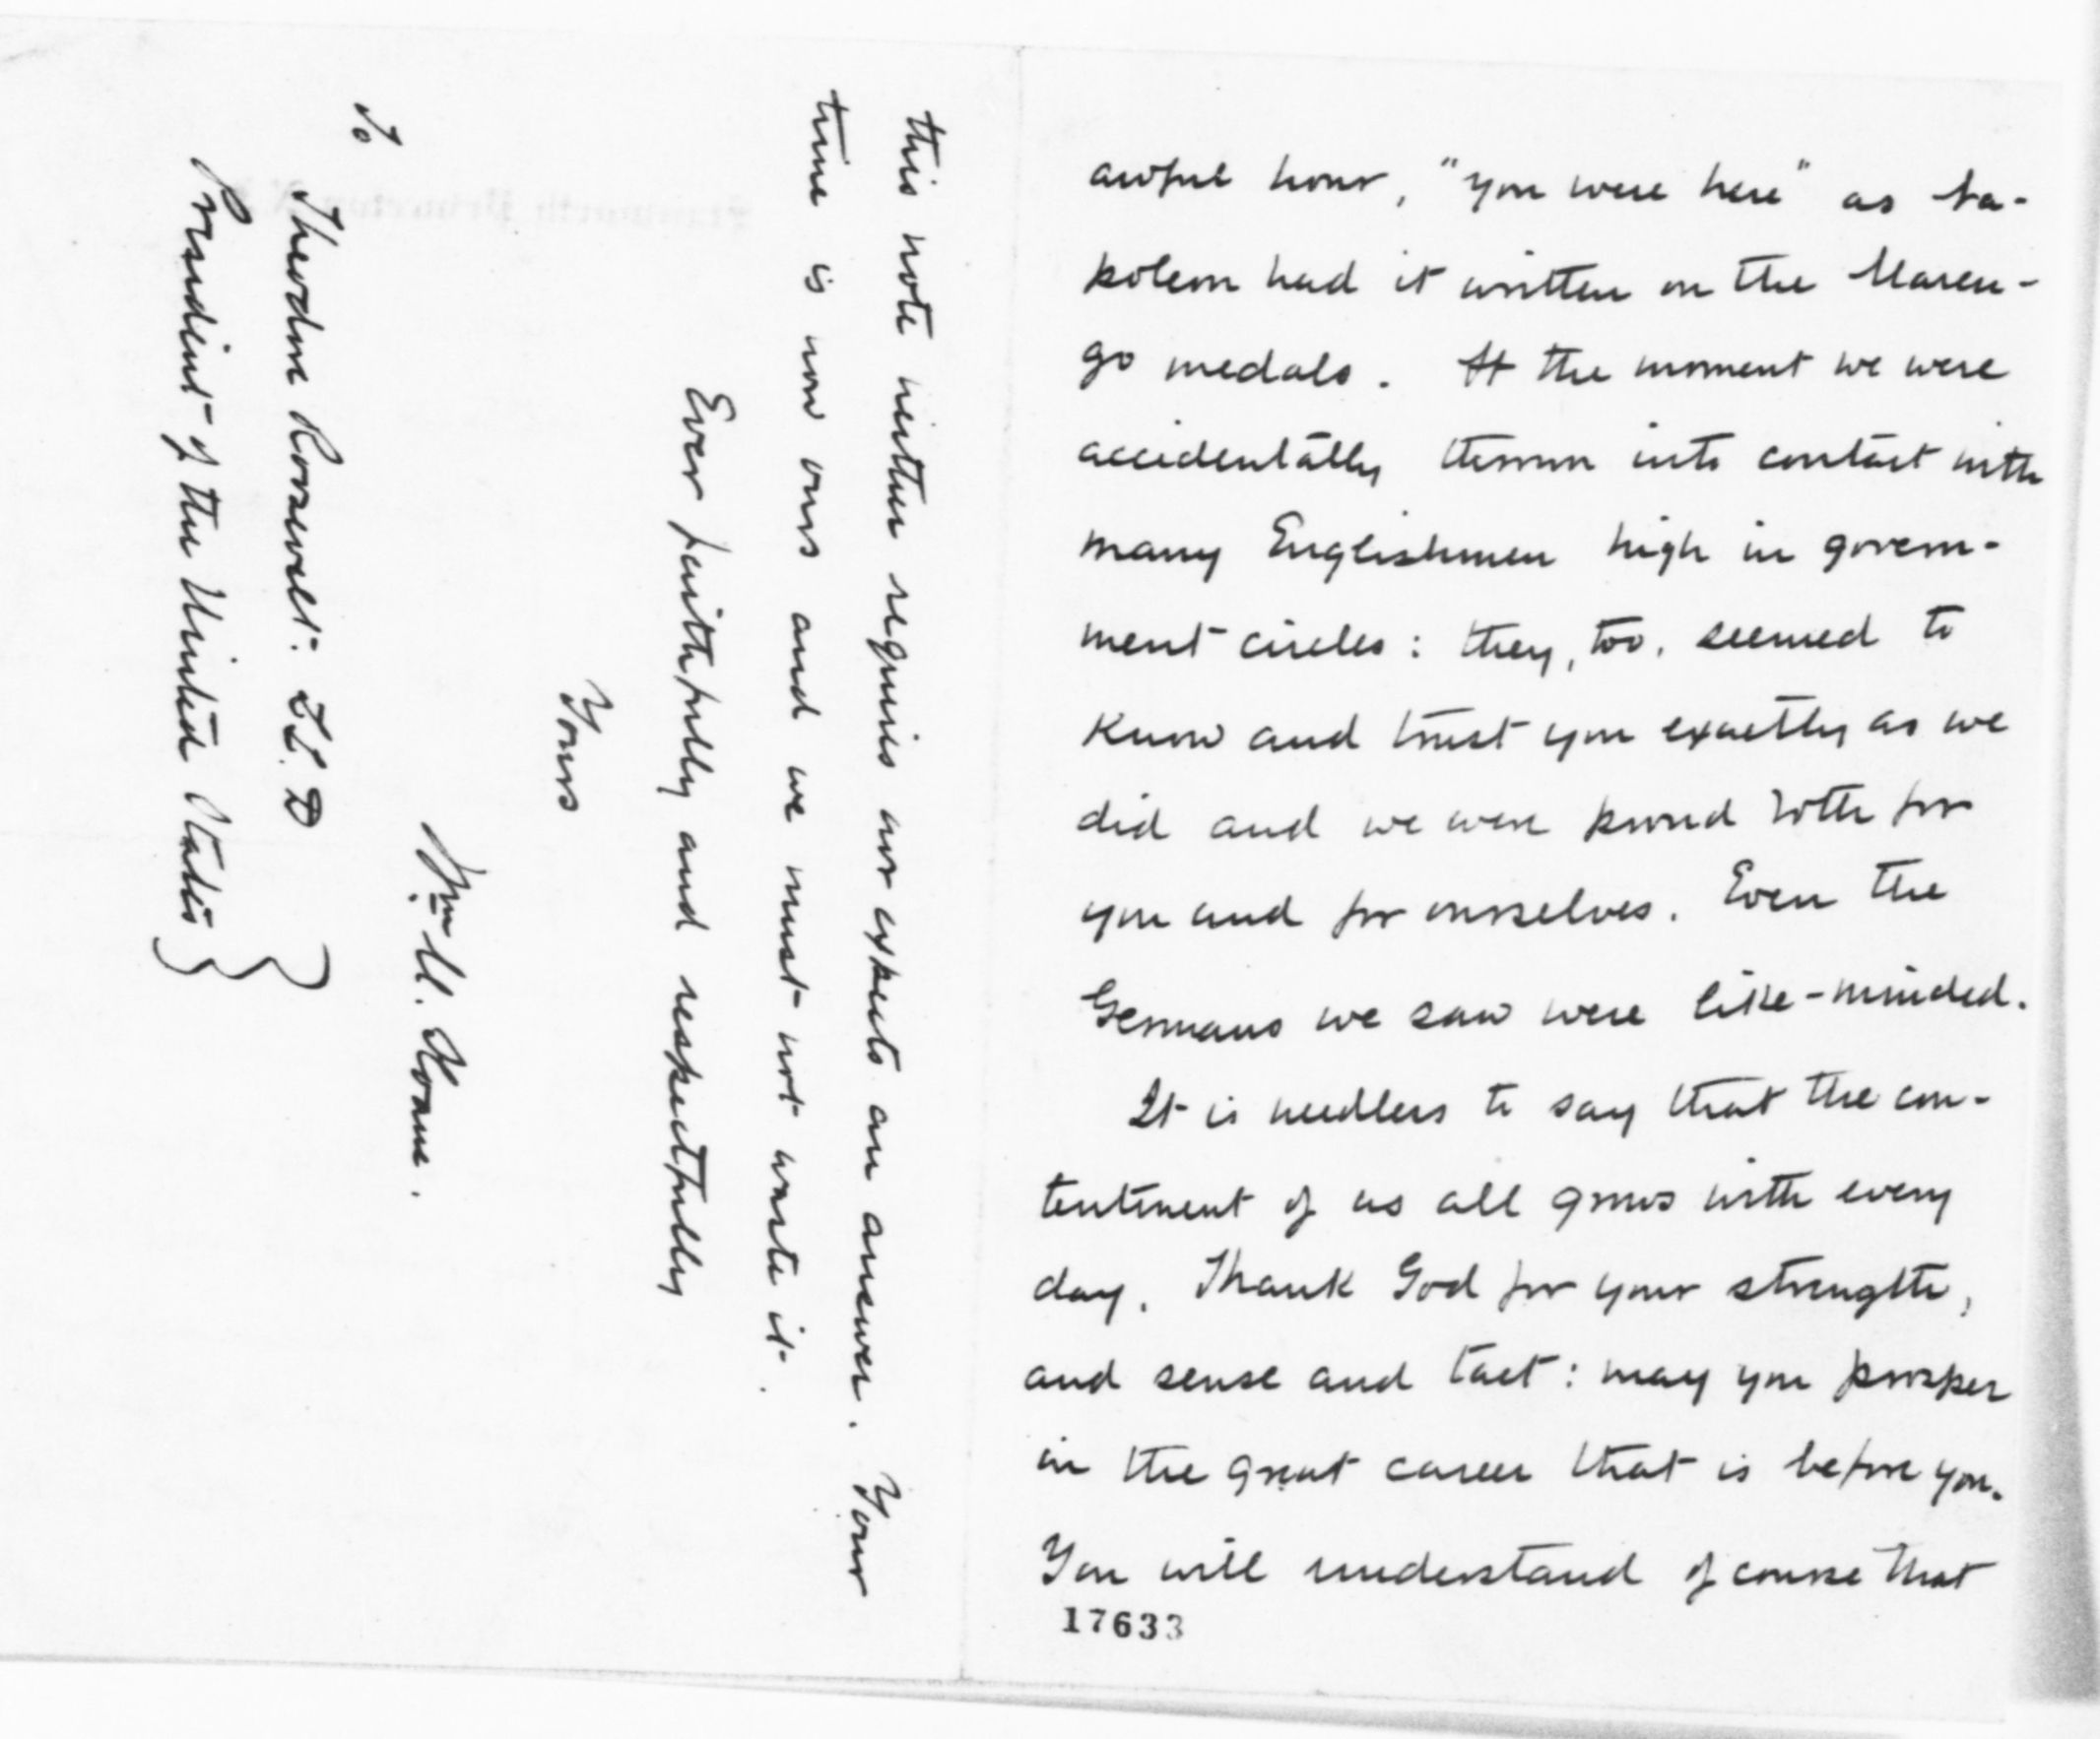 awful hour, "you were here" as Na-
poleon had it written on the Maren-
go medals. At the moment we were
accidentally thrown into contact with
many Englishmen high in govern-
ment circles: they, too, seemed to
know and trust you exactly as we
did and we were proud both for
you and for ourselves. Even the
Germans we saw were like-minded.
It is needless to say that the con-
tentment of us all grows with every
day. Thank God for your strength,
and sense and tact: may you prosper
in the great career that is before you.
You will understand of course that
17633
this note neither requires nor expects an answer. Your
time is now ours and we must not waste it.
Ever faithfully and respectfully
Yours
Wm M. Sloane.
To
Theodore Roosevelt: LL.D
President of the United States